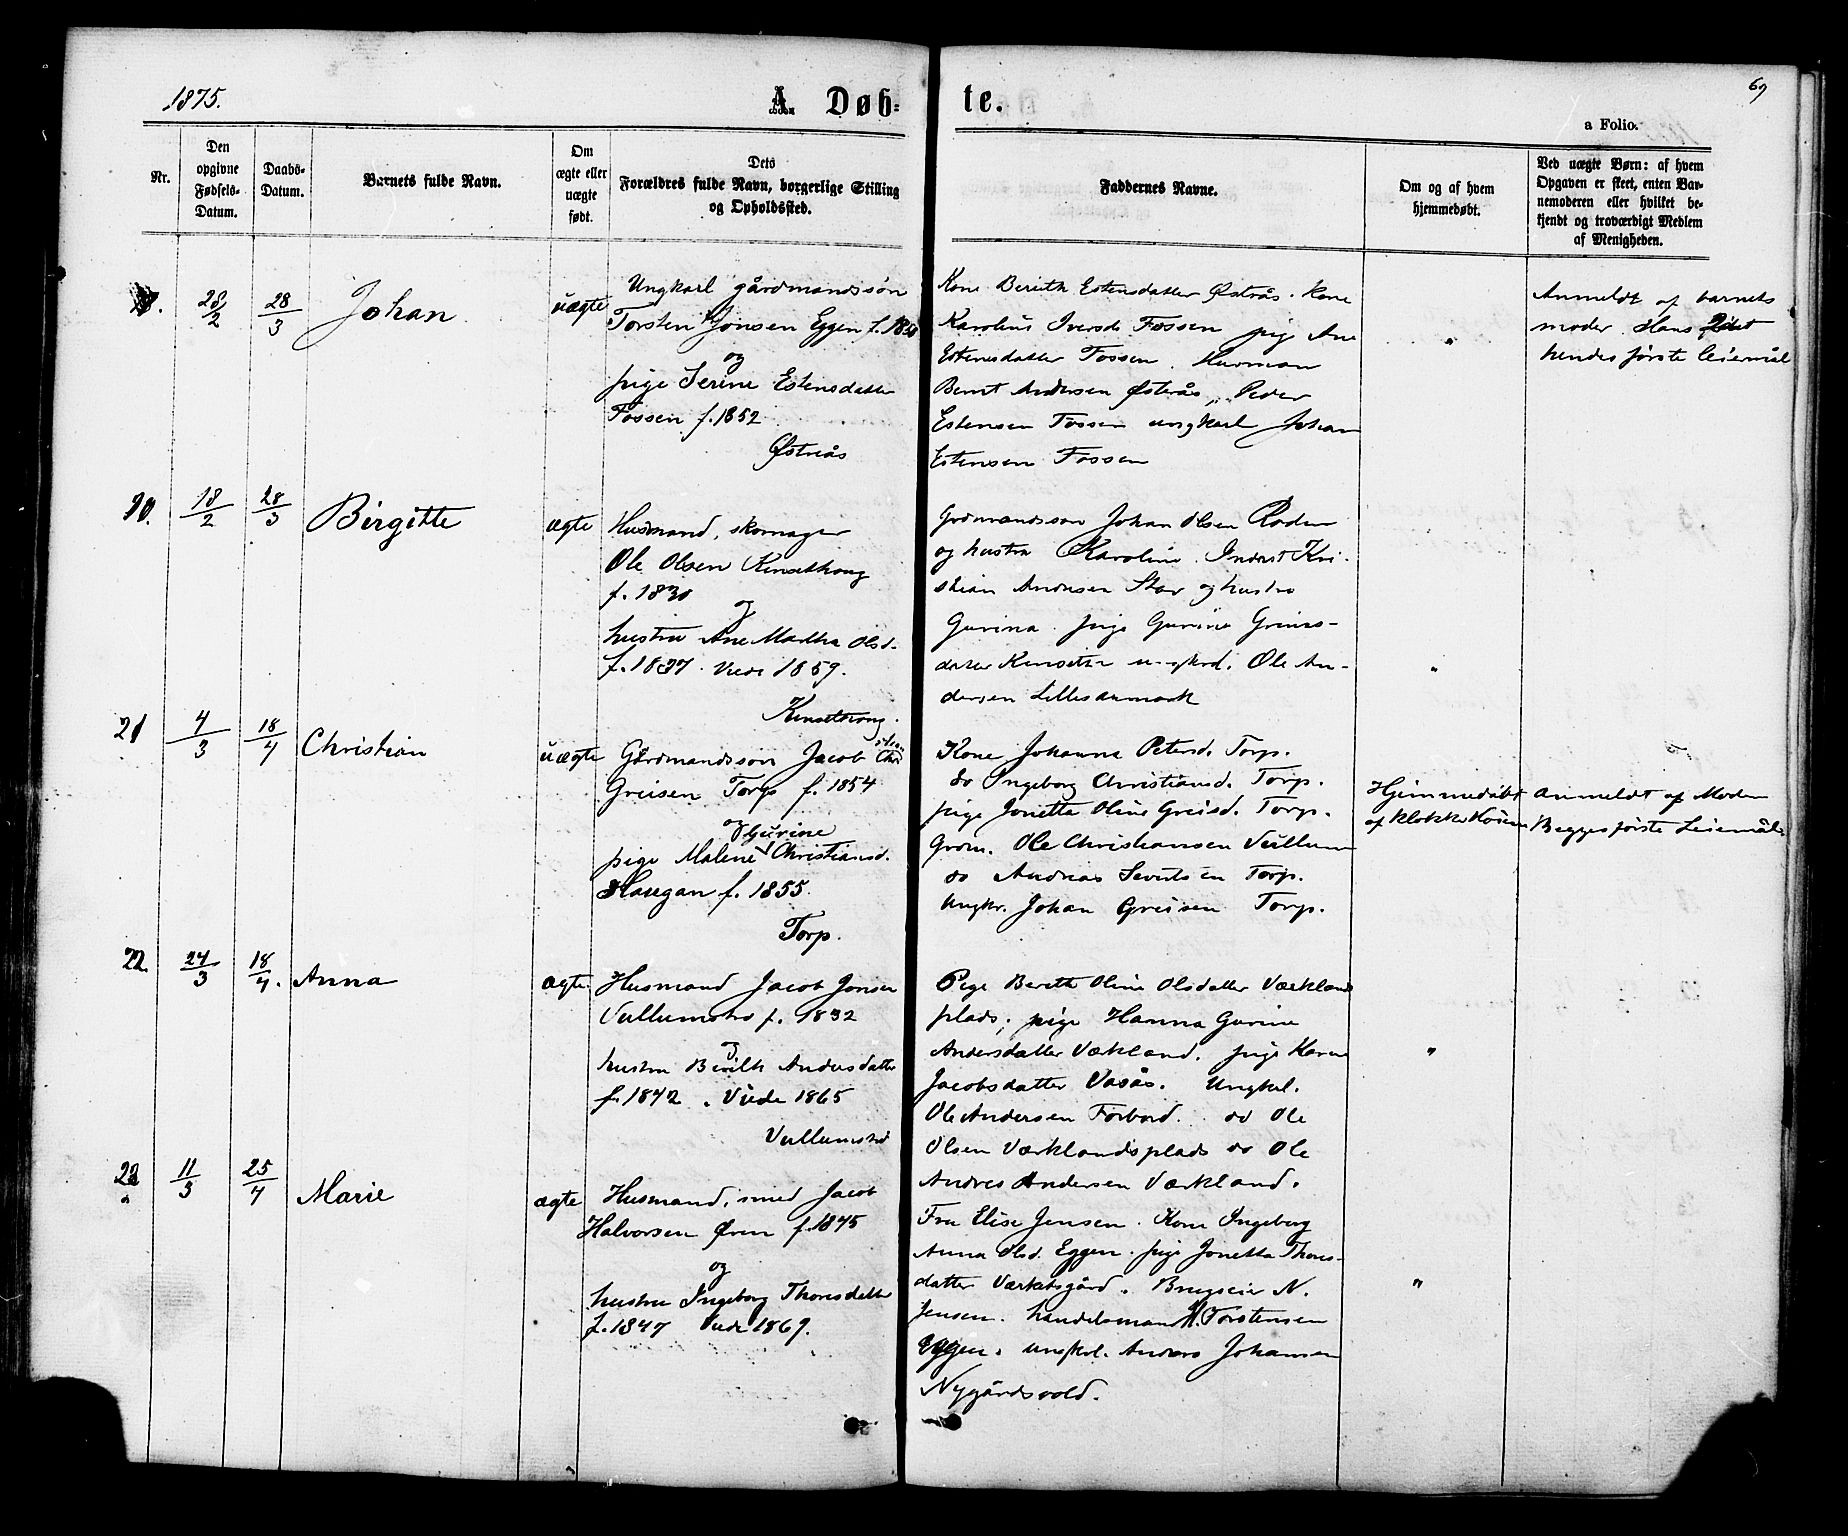 1875.
A. Døb-te.
69
a Folio.
Nr.
Den opgivne Fødsels-Datum.
Daabs-Datum.
Barnets fulde Navn.
Om ægte eller uægte født.
Dets Forældres fulde Navn, borgerlige Stilling og Opholdssted.
Faddernes Navne.
Om og af hvem hjemmedøbt.
Ved uægte Børn: af hvem Opgaven er skeet, enten Barnemoderen eller hvilket bekjendt og troværdigt Medlem af Menigheden.
28/2
28/3
Johan
uægte
Ungkarl gårdmandssøn
Torsten Jonsen Eggen f.
og
pige Serine Estensdatter
Fossen f. 1852
Østreås
Kone Berith Estensdatter Østrås. Kone
Karolius Iversd. Fossen pig Ane
Estensdatter Fossen. Husman
Bernt Andersen Østerås, Peder
Estensen Fossen ungkarl Johan
Estensen Fossen
"
Anmeldt af barnets
moder. Hans
hendes første leiermål
18/2
28/3
Birgitte
ægte
Husmand, skomager
Ole Olsen Kinsethaug
f. 1830
og
hustru Ane Martha Olsd.
f. 1837. Viede 1859.
Kinsethaug.
Grdmandsson Johan Olsen Roden
og hustru Karoline. Inderst Kri-
stian Andersen Stav og hustro
Gurina. pige Gurine Greies-
datter Kinseth ungkrl. Ole An-
dersen Lillesanmark
"
21
4/3
18/4
Christian
uægte
Gårdmandssøn Jacob Chri stian
Greisen Torp f. 1854
og
pige Malene Gurine Christiansd.
Haugan f. 1855.
Torp.
Kone Johanna Petersd. Torp.
do Ingeborg Christiansd. Torp.
pige Jonetta Oline Greisd. Torp.
Grdm. Ole Christiansen Vullum
do Andreas Sivertsen Torp.
Ungkr. Johan Greisen Torp.
Hjemmedøbt
af klokker
Anmeldt af Moden
Begges første Leiermål
22
24/3
18/4.
Anna
ægte
Husmand Jacob Jonsen
Vullumstrø f. 1832
og
hustru Berith Andersdatter
f. 1842. Viede 1865
Vullumstrø
Pige Bereth Oline Olsdatter Værklands
plads; pige Hanna Gurine
Andersdatter Værkland. pige Karen
Jacobsdatter Vasås. Ungkrl.
Ole Andersen Forbord. do Ole
Olsen Værklandsplads do Ole
Andres Andersen Værkland.
"
22
a
11/3
25/4
Marie
ægte
Husmand, smed Jacob
Halvorsen Øren f. 1845
og
hustru Ingeborg Thoresdatter
f. 1847 Viede 1869.
Fru Elise Jensen. Kone Ingeborg
Anna Olsd. Eggen. pige Jonetta Thores-
datter Værketsgård. Brugseier N.
Jensen. handelsmand Torstensen
Eggen. ungkrl. Anders Johansen
Nygårdsvold.
"